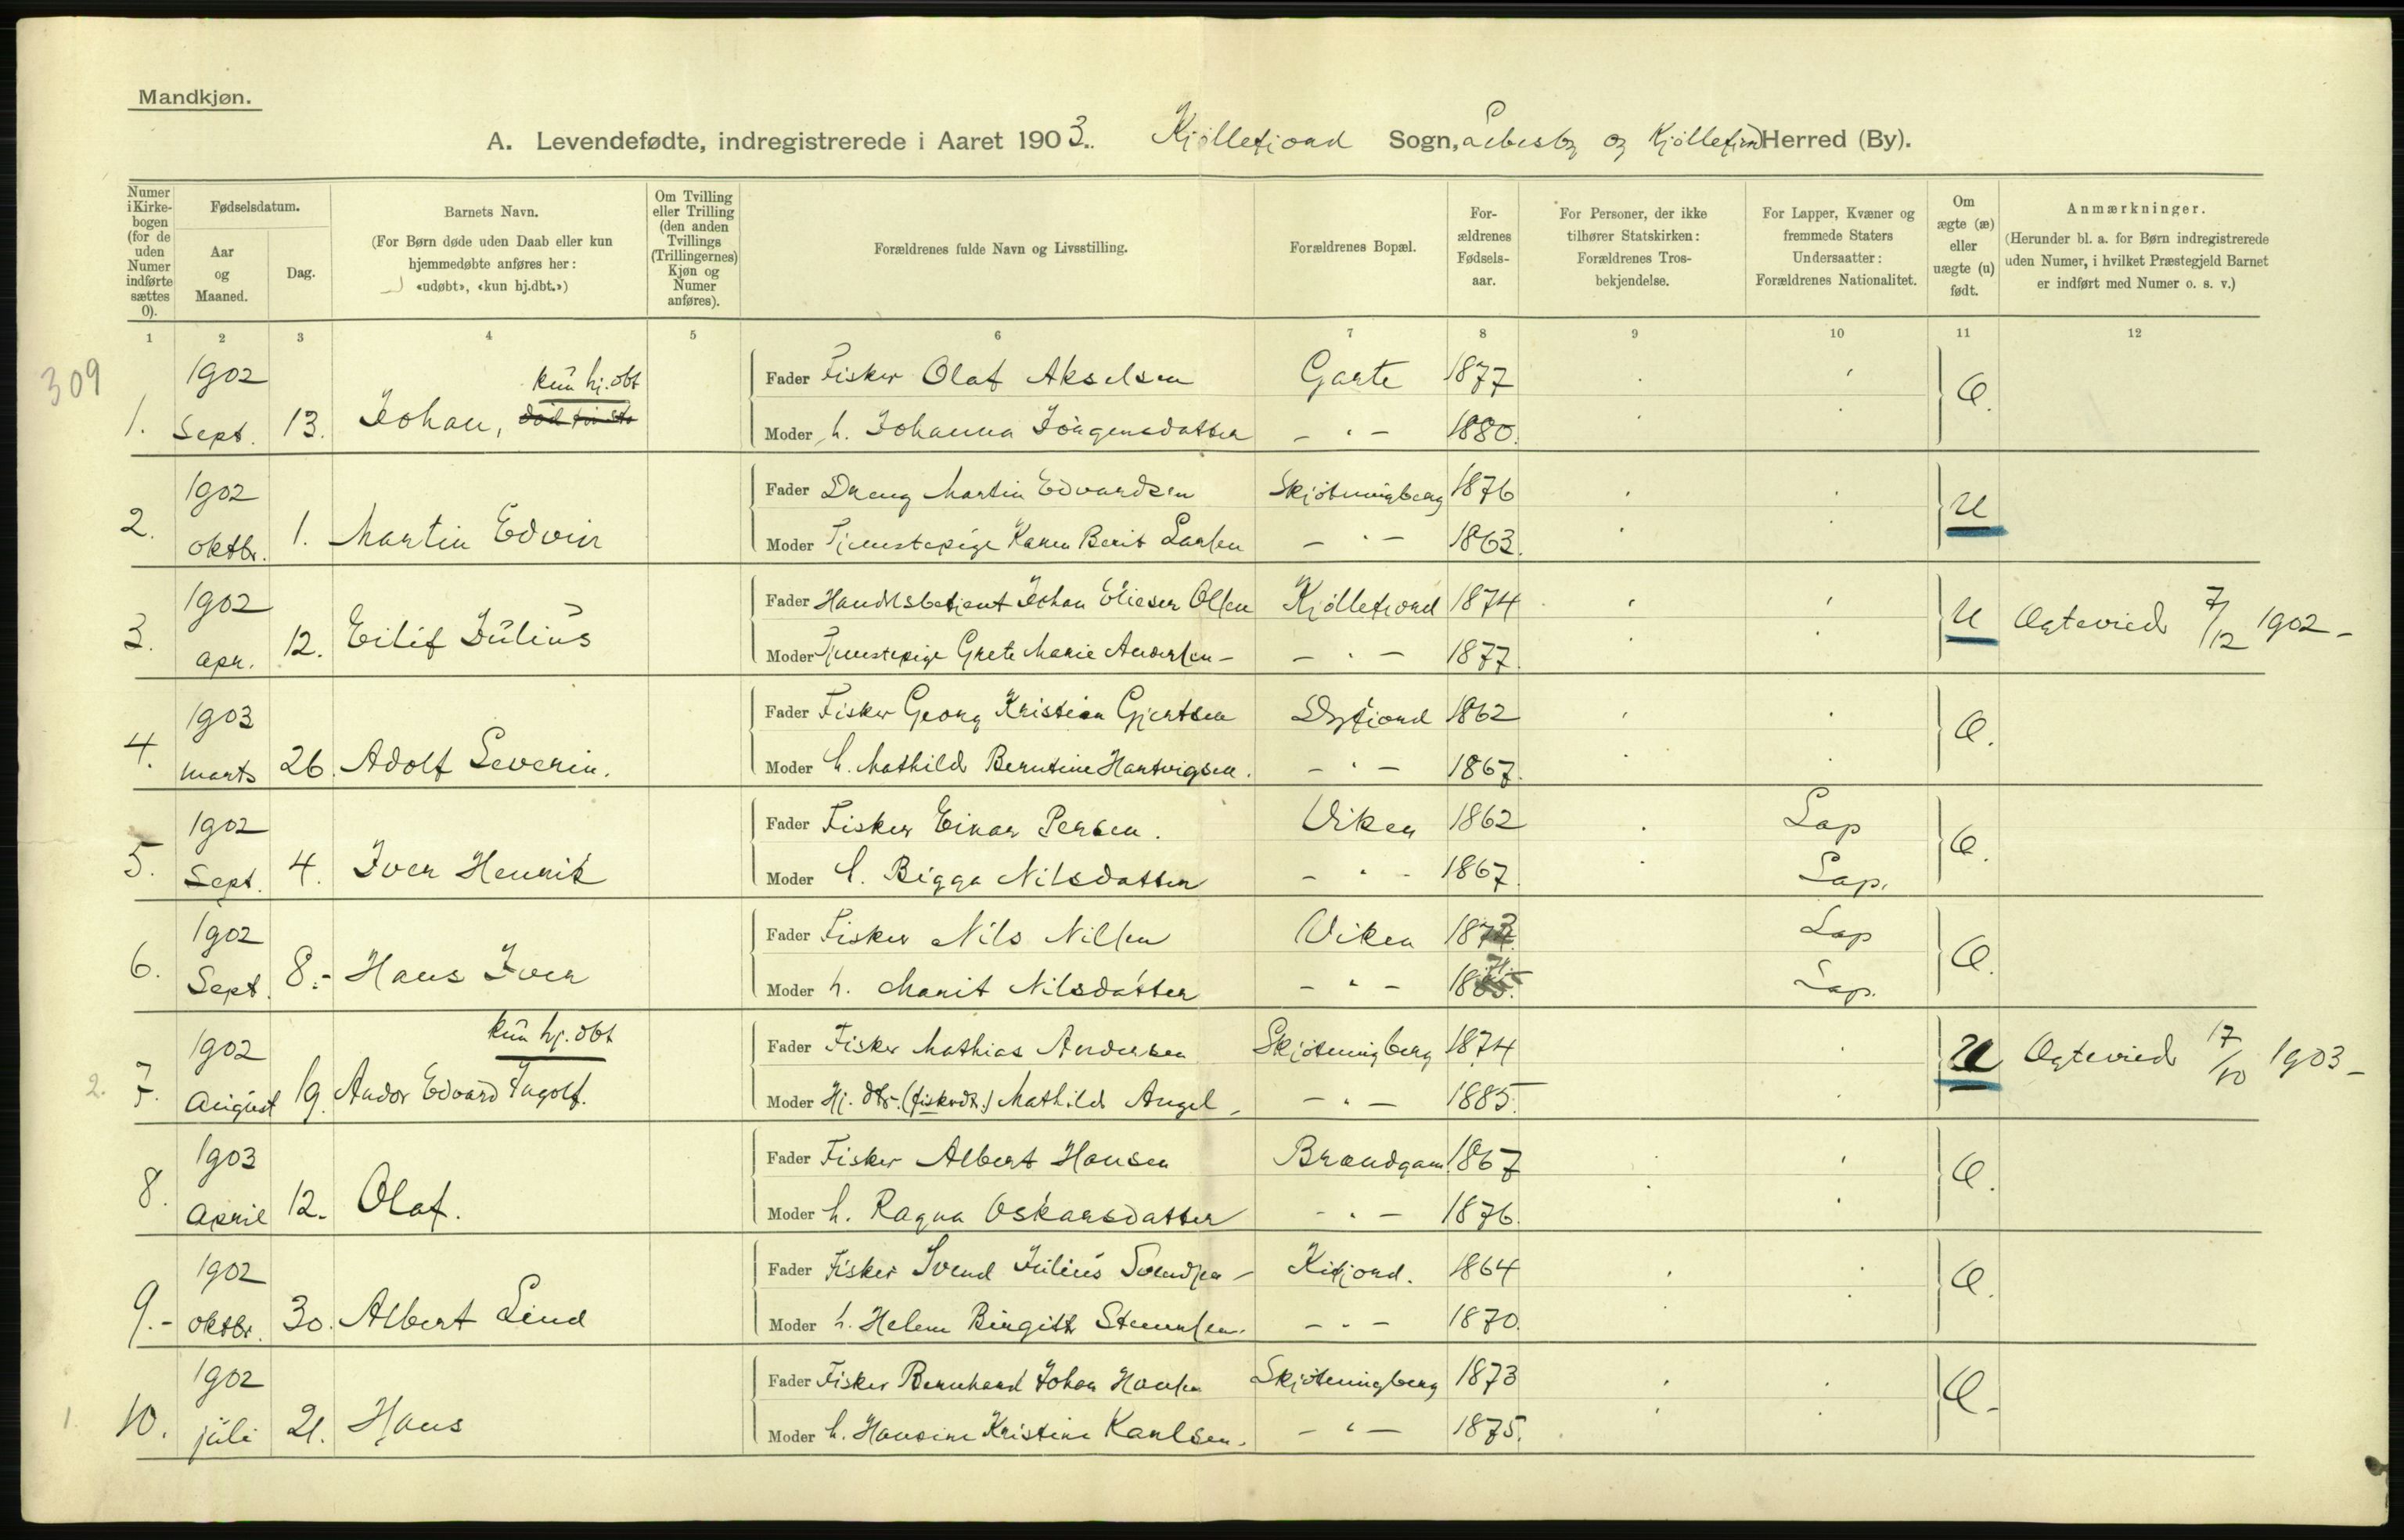 Mandkjøn.
A. Levendefødte, indregistrerede i Aaret 1903. Kjøllefjord Sogn, Lebesby og Kjøllefjord Herred (By).
Numer i Kirke-bogen (for de uden Numer indførte sættes 0).
Fødselsdatum.
Aar og Maaned.
Dag.
Barnets Navn.
(For Børn døde uden Daab eller kun hjemmedøbte anføres her: «udøbt», «kun hj.dbt.»)
Om Tvilling eller Trilling (den anden Tvillings (Trillingernes) Kjøn og Numer anføres).
Forældrenes fulde Navn og Livsstilling.
Forældrenes Bopæl.
For-ældrenes Fødsels-aar.
For Personer, der ikke tilhører Statskirken: Forældrenes Tros-bekjendelse.
For Lapper, Kvæner og fremmede Staters Undersaatter: Forældrenes Nationalitet.
Om ægte (æ) eller uægte (u) født.
Anmærkninger.
(Herunder bl. a. for Børn indregistrerede uden Numer, i hvilket Præstegjeld Barnet er indført med Numer o. s. v.)
1 2 3 4 5 6 7 8 9 10 11 12
309
1902 kun hj. dbt Fader Fisker Olaf Akselsen Garte 1877 Æ.
1. Sept. 13. Johan, Moder h. Johanna Jørgensdatter - " - 1880.
1902 Fader Dreng Martin Edvardsen Skjøtningberg 1876 U
2. oktbr. 1. Martin Edvin Moder Tjenestepige Karen Berit Larsen - " - 1863.
1902 Fader Handelsbetjent Johan Elieser Olsen Kjøllefjord 1874 U Ægteviet 7/12 1902 -
3. apr. 12. Eilif Julius Moder Tjenestepige Grete Marie Andersen - - " - 1877.
1903 Fader Fisker Georg Kristian Gjertsen Dyfjord 1862 Æ.
4. marts 26. Adolf Severin. Moder h. Mathild Berntine Hartvigsen. - " - 1867.
1902 Fader Fisker Einar Persen. Viken 1862 Lap Æ.
5. Sept. 4. Iver Henrik Moder h. Bigga Nilsdatter - " - 1867. Lap.
1902 Fader Fisker Nils Nilsen Viken Lap Æ.
6. Sept. 8.- Hans Iver Moder h. Marit Nilsdatter - " - Lap.
1902 kun hj. dbt Fader Fisker Mathias Andersen Skjøtningberg 1874 U Ægteviet 17/10 1903 -
2. 7. August 19. Andor Edvard Ingolf. Moder Hj. dtr. (fiskerdt.) Mathilde Angel - - " - 1885.
1903 Fader Fisker Albert Hansen Brandgam 1867 Æ.
8. April 12. Olaf. Moder h. Ragna Oskarsdatter - " - 1876.
1902 Fader Fisker Svend Julius Svendsen - Kifjord. 1864 Æ.
9.- oktbr. 30. Albert Lind Moder h. Helene Birgitte - " - 1870.
1902 Fader Fisker Bernhard Johan Hansen Skjøtningberg 1873 Æ -
1. 10. juli 21. Hans Moder h. Hansine Kristine Karlsen. - " - 1875.